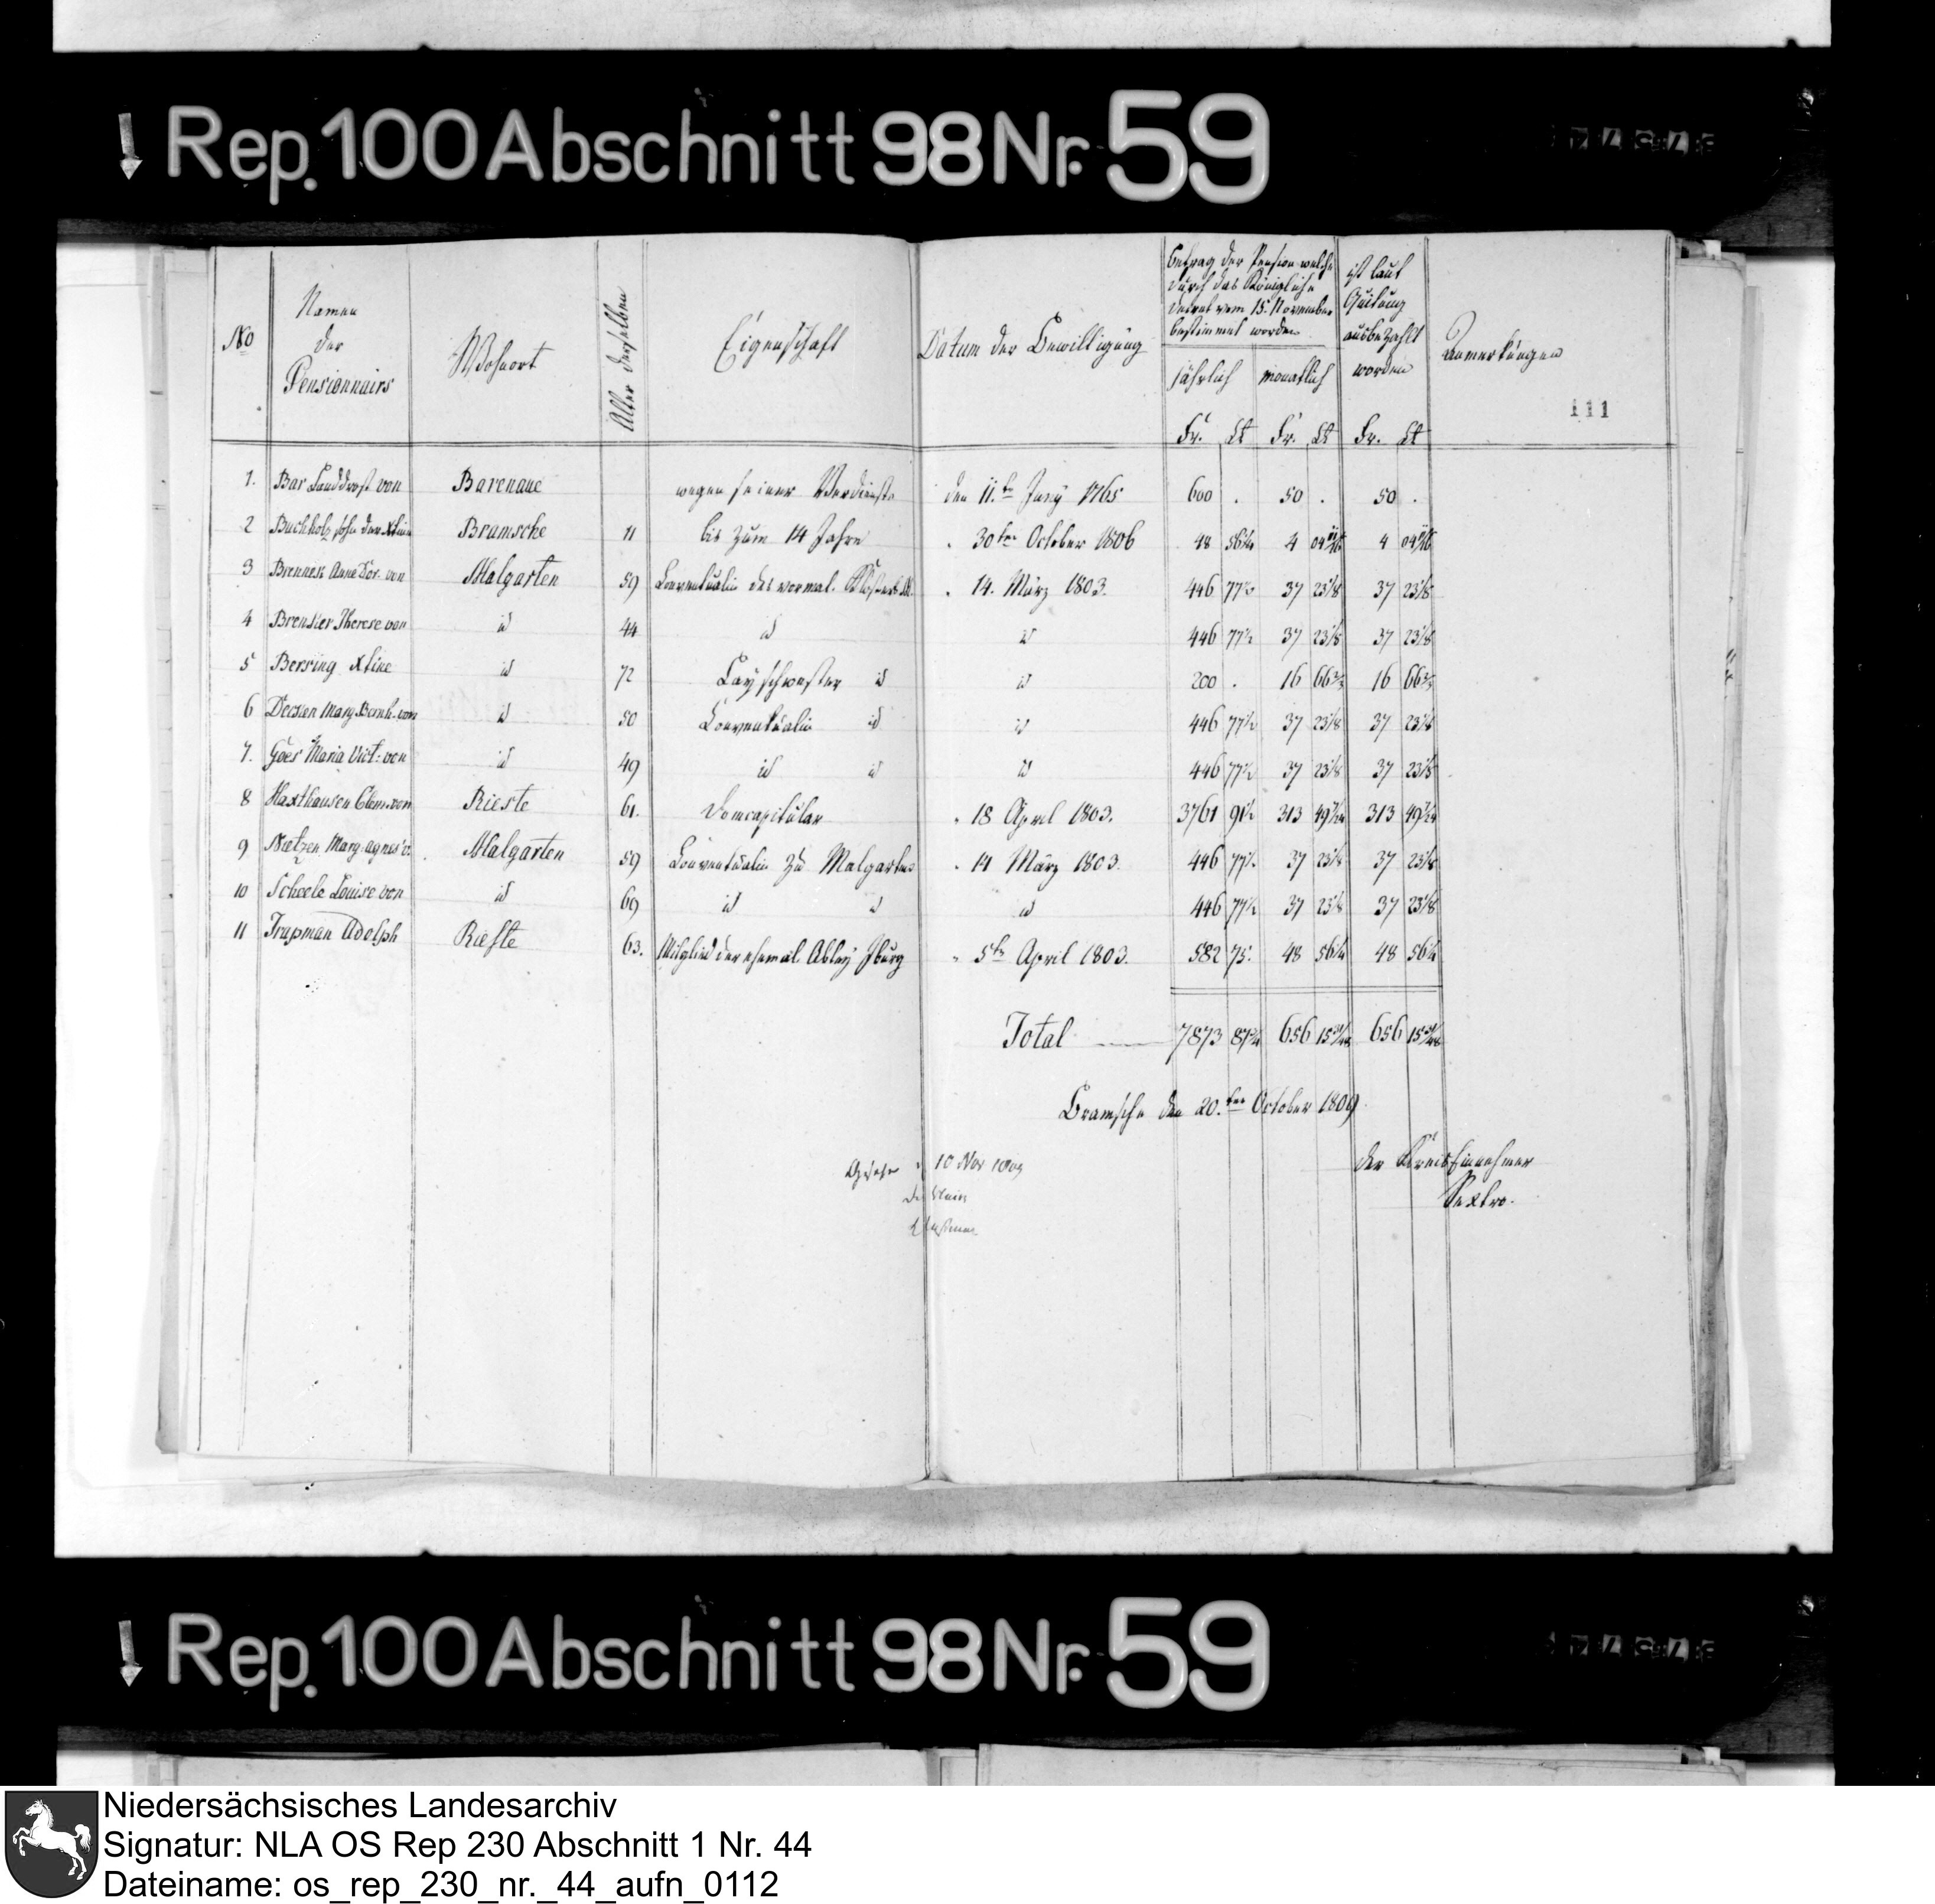 Rep. 100 Abschnitt 98 Nr. 59
No
Namen
der
Pensionnairs
Wohnort
Alter derselben
Eigenschaft
Datum der Bewilligung
Betrag der Pension welche
durch das Königliche
Decret vom 15. November
bestimmt worden
jährlich monatlich
Fr. Ct Fr. Ct
ist laut
Quitung
ausbezahlt
worden
Fr. Ct
Anmerkungen
111
1. Bar Landdrost von Barenaue wegen seiner Verdienste den 11.ten Juny 1765 600 . 50 . 50 .
2 Buchholz Sohn der Bramsche 11 bis zum 14 Jahre " 30ten October 1806 48 56 1/4 4 04 11/16 4 04 11/16
3 Anne Dor. von Malgarten 59 Conventualin des vormal. Klosters M. " 14. März 1803. 446 77 1/2 37 23 1/8 37 23 1/8
4 Therese von id 44 id id 446 77 1/2 37 23 1/8 37 23 1/8
5 Bersing Xtine id 72 Layschwester id id 200 . 16 66 2/3 16 66 2/3
6 Marg. Bernh. von id 50 Conventualin id id 446 77 1/2 37 23 1/8 37 23 1/8
7. Göes Maria Vict: von id 49 id id id 446 77 1/2 37 23 1/8 37 23 1/8
8 Haxthausen Clem. von Rieste 61. Domcapitular " 18 April 1803. 3761 91 1/2 313 49 7/24 313 49 7/24
9 Nietzen Marg. Agnes v. Malgarten 59 Conventualin zu Malgarten " 14 März 1803. 446 77 1/2 37 23 1/8 37 23 1/8
10 Scheele Louise von id 69 id id id 446 77 1/2 37 23 1/8 37 23 1/8
11 Trapman Adolph Rieste 63. Mitglied der ehemal. Abtey Iburg " 5ten April 1803. 582 75. 48 56 1/4 48 56 1/4
Total 7873 87 3/4 656 15 31/48 656 15 31/48
Bramsche den 20.ten October 1809.
Gesehen 10 Nov 1809
der Kreis Einnehmer
Sextro.
Rep. 100 Abschnitt 98 Nr. 59
Niedersächsisches Landesarchiv
Signatur: NLA OS Rep 230 Abschnitt 1 Nr. 44
Dateiname: os_rep_230_nr._44_aufn_0112